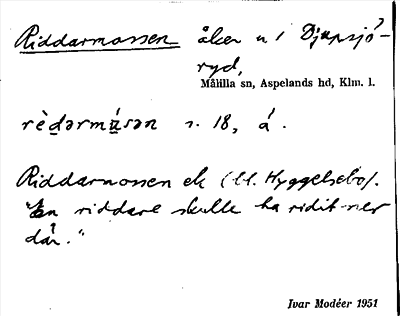 Riddarmossen åker n i Djupsjö-
ryd,
Målilla sn, Aspelands hd, Klm. l.
rèdərmúsən s. 18, á.
Riddarmossen ek (bl. Hyggelsebo).
"En riddare skulle ha ridit ner
där."
Ivar Modéer 1951